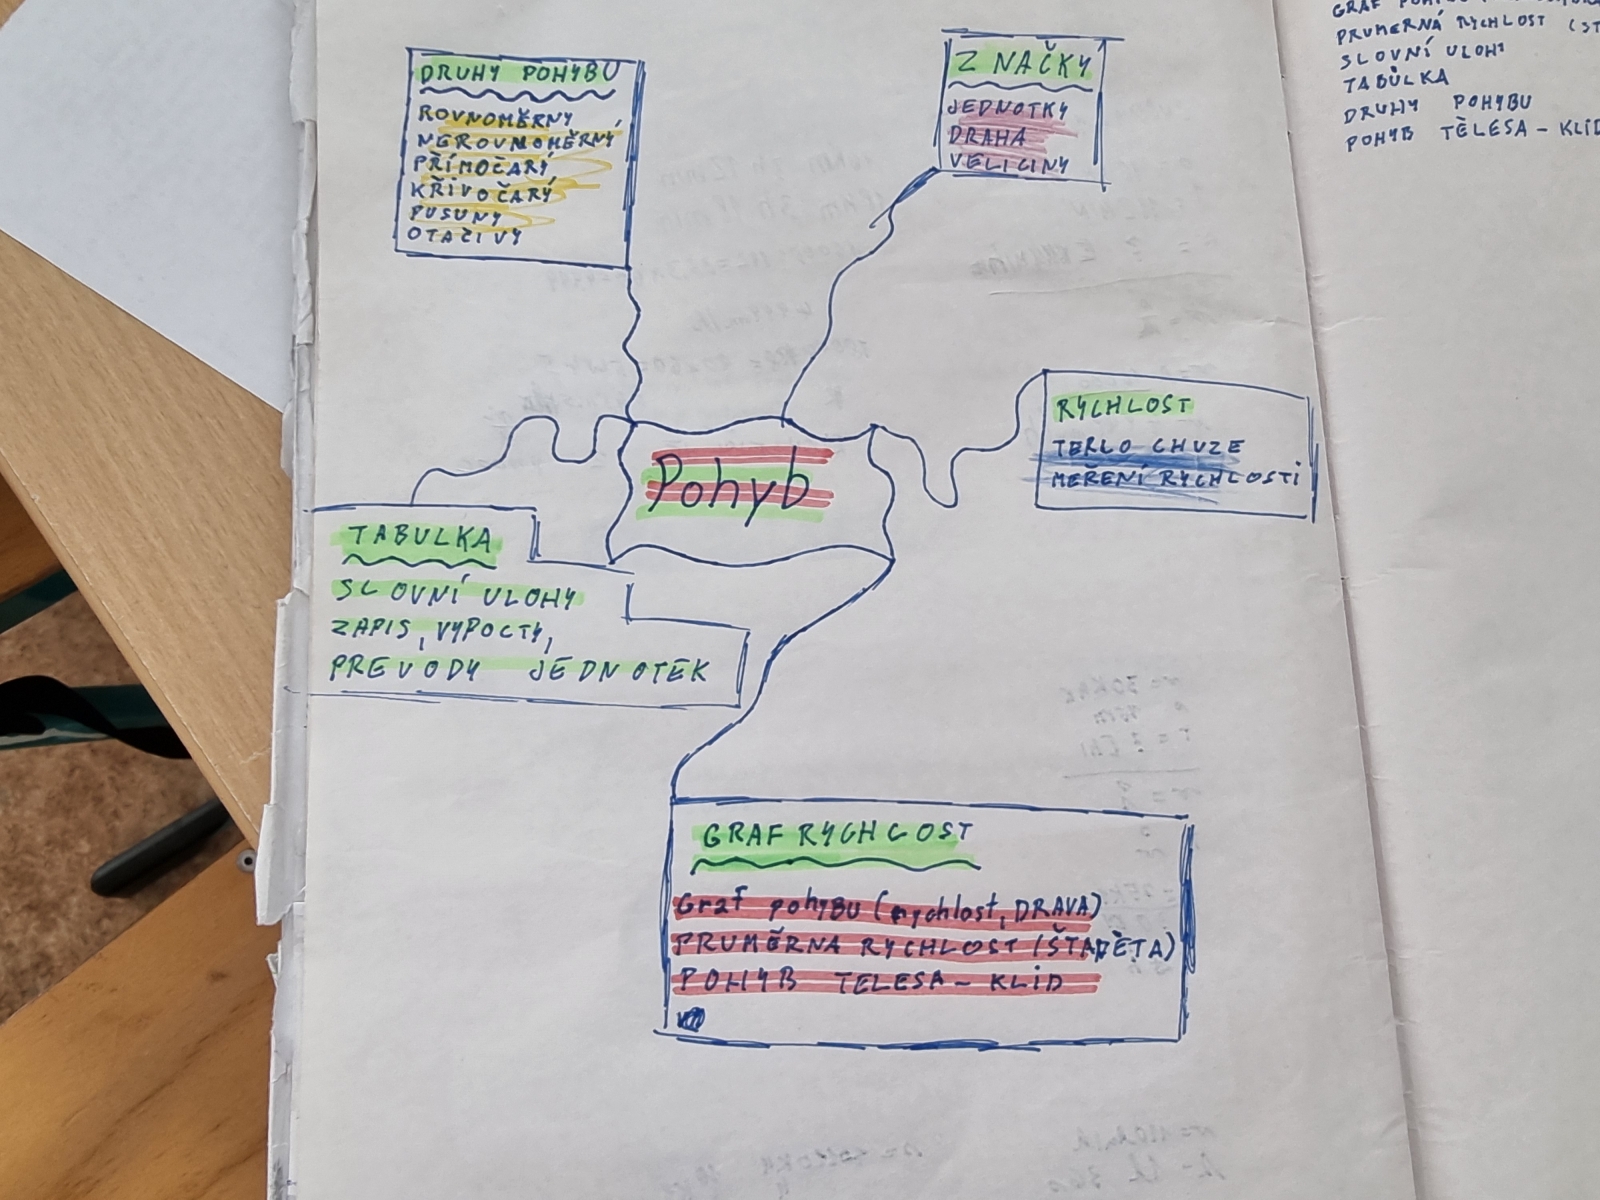 DRUHY POHYBU
ROVNOMĚRNY
NEROVNOMĚRNÝ
PŘÍMOČARÝ
KŘIVOČARÝ
PUSUNY
OTAČIVY
ZNAČKY
JEDNOTKY
DRAHA
VELICINY
RYCHLOST
TERLO CHUZE
MEŘENÍ RYCHLOSTI
Pohyb
TABULKA
SLOVNÍ ULOHY
ZAPIS, VYPOCTY,
PREVODY JEDNOTEK
GRAF RYCHLOST
Graf pohYBU (rychlost, DRAVA)
PRUMĚRNA RYCHLOST (ŠTAPĚTA)
POHYB TELESA - KLID
GRAF
PRUMERNÁ RYCHLOST (ST
SLOVNÍ ULOHY
TABŮLKA
DRUHY POHYBU
POHYB TĚLESA - KLID